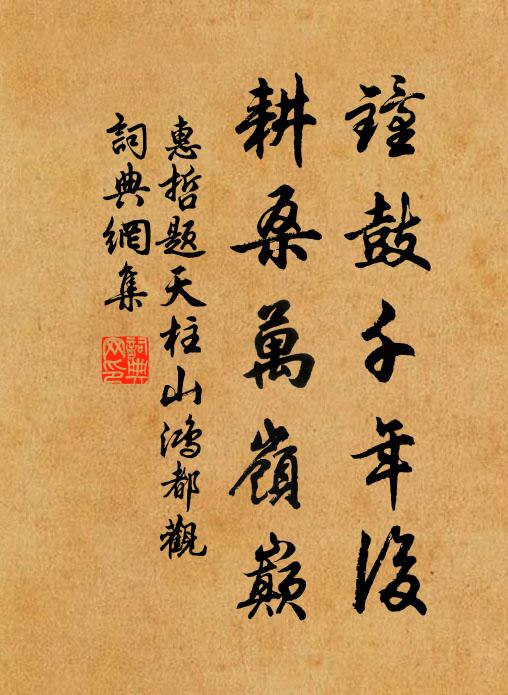 鐘鼓千年後
耕桑萬嶺巔
惠哲題天柱山鴻都觀
詞典網集
詞典
网印